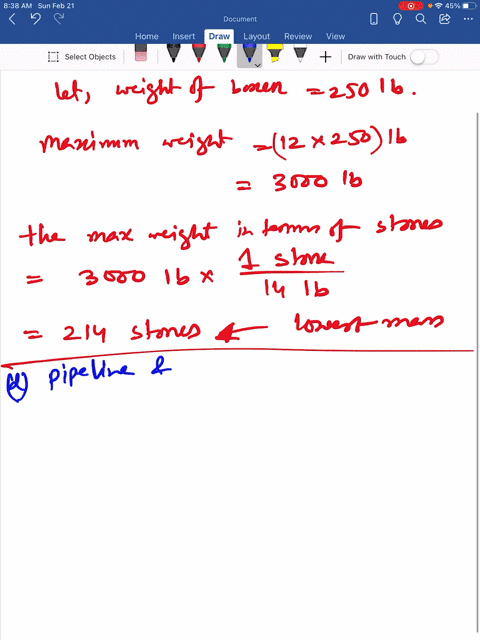 8:38 AM Sun Feb 21
45%
Document
Home Insert Draw Layout Review View
Select Objects
Draw with Touch
let, weight of boxer = 250 lb.
maximum weight = (12 × 250) lb
= 3000 lb
the max weight in terms of stones
= 3000 lb × 1 stone / 14 lb
= 214 stones ← lowest mass
(d) pipeline &